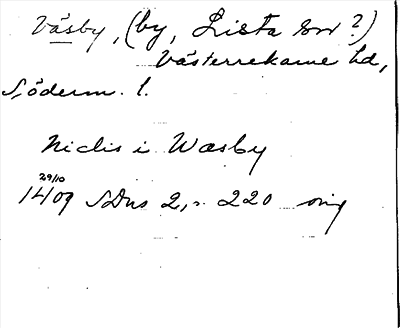 Väsby, (by, Lista sn?)
Västerrekarne hd,
Söderm. l.
Niclis i Wæsby
29/10
1409 SDns 2, s. 220 orig